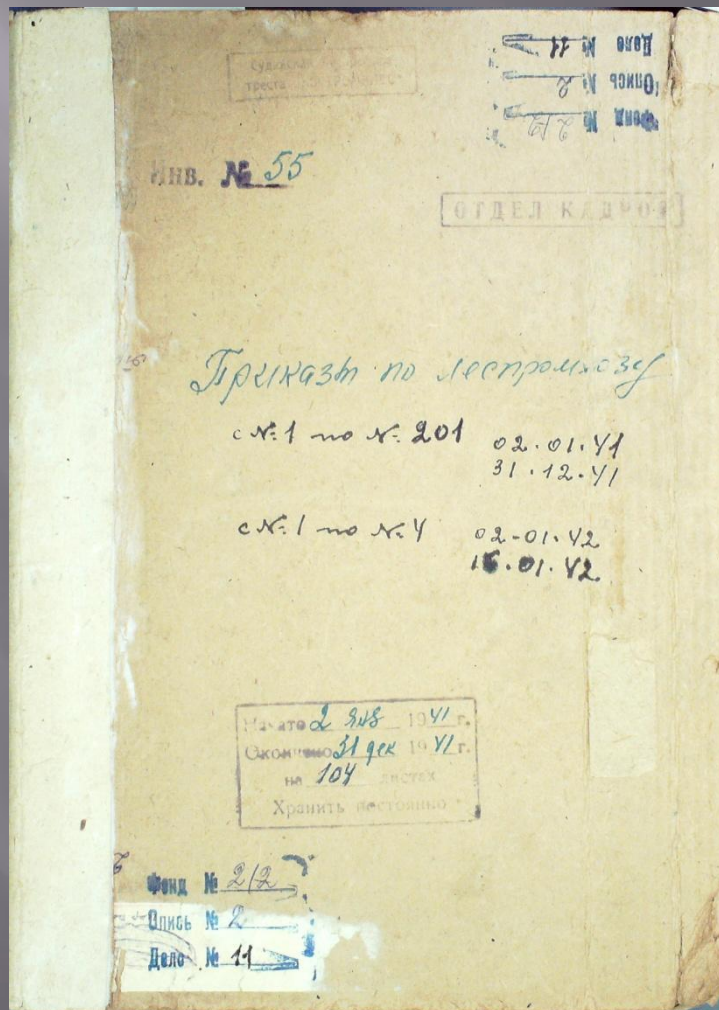 треста
Дело № 11
Опись № 2
Фонд № 212
Инв. № 55
ОТДЕЛ КАДРОВ
Приказы по леспромхозу
с №1 по №201 02.01.41
31.12.41
с №1 по №4 02-01.42
16.01.42
Начато 2 янв 1941 г.
Окончено 31 дек 1941 г.
на 104 листах
Хранить постоянно
Фонд № 212
Опись № 2
Дело № 11